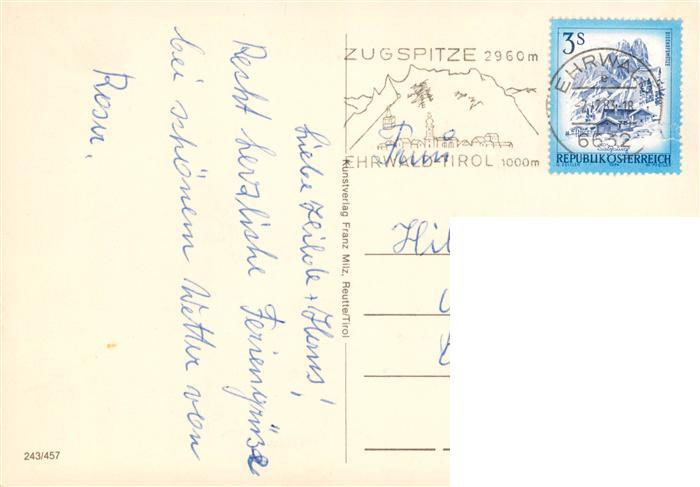 ZUGSPITZE 2960m
EHRWALD-TIROL 1000m
EHRWALD
e
83-18
6632
3S
BISCHOFSMÜTZE
REPUBLIK ÖSTERREICH
Liebe Hilde + Hans!
Recht herzliche Feriengrüße
bei schönem Wetter von
Rosw.
Kunstverlag Franz Milz, Reutte/Tirol
Hil
243/457